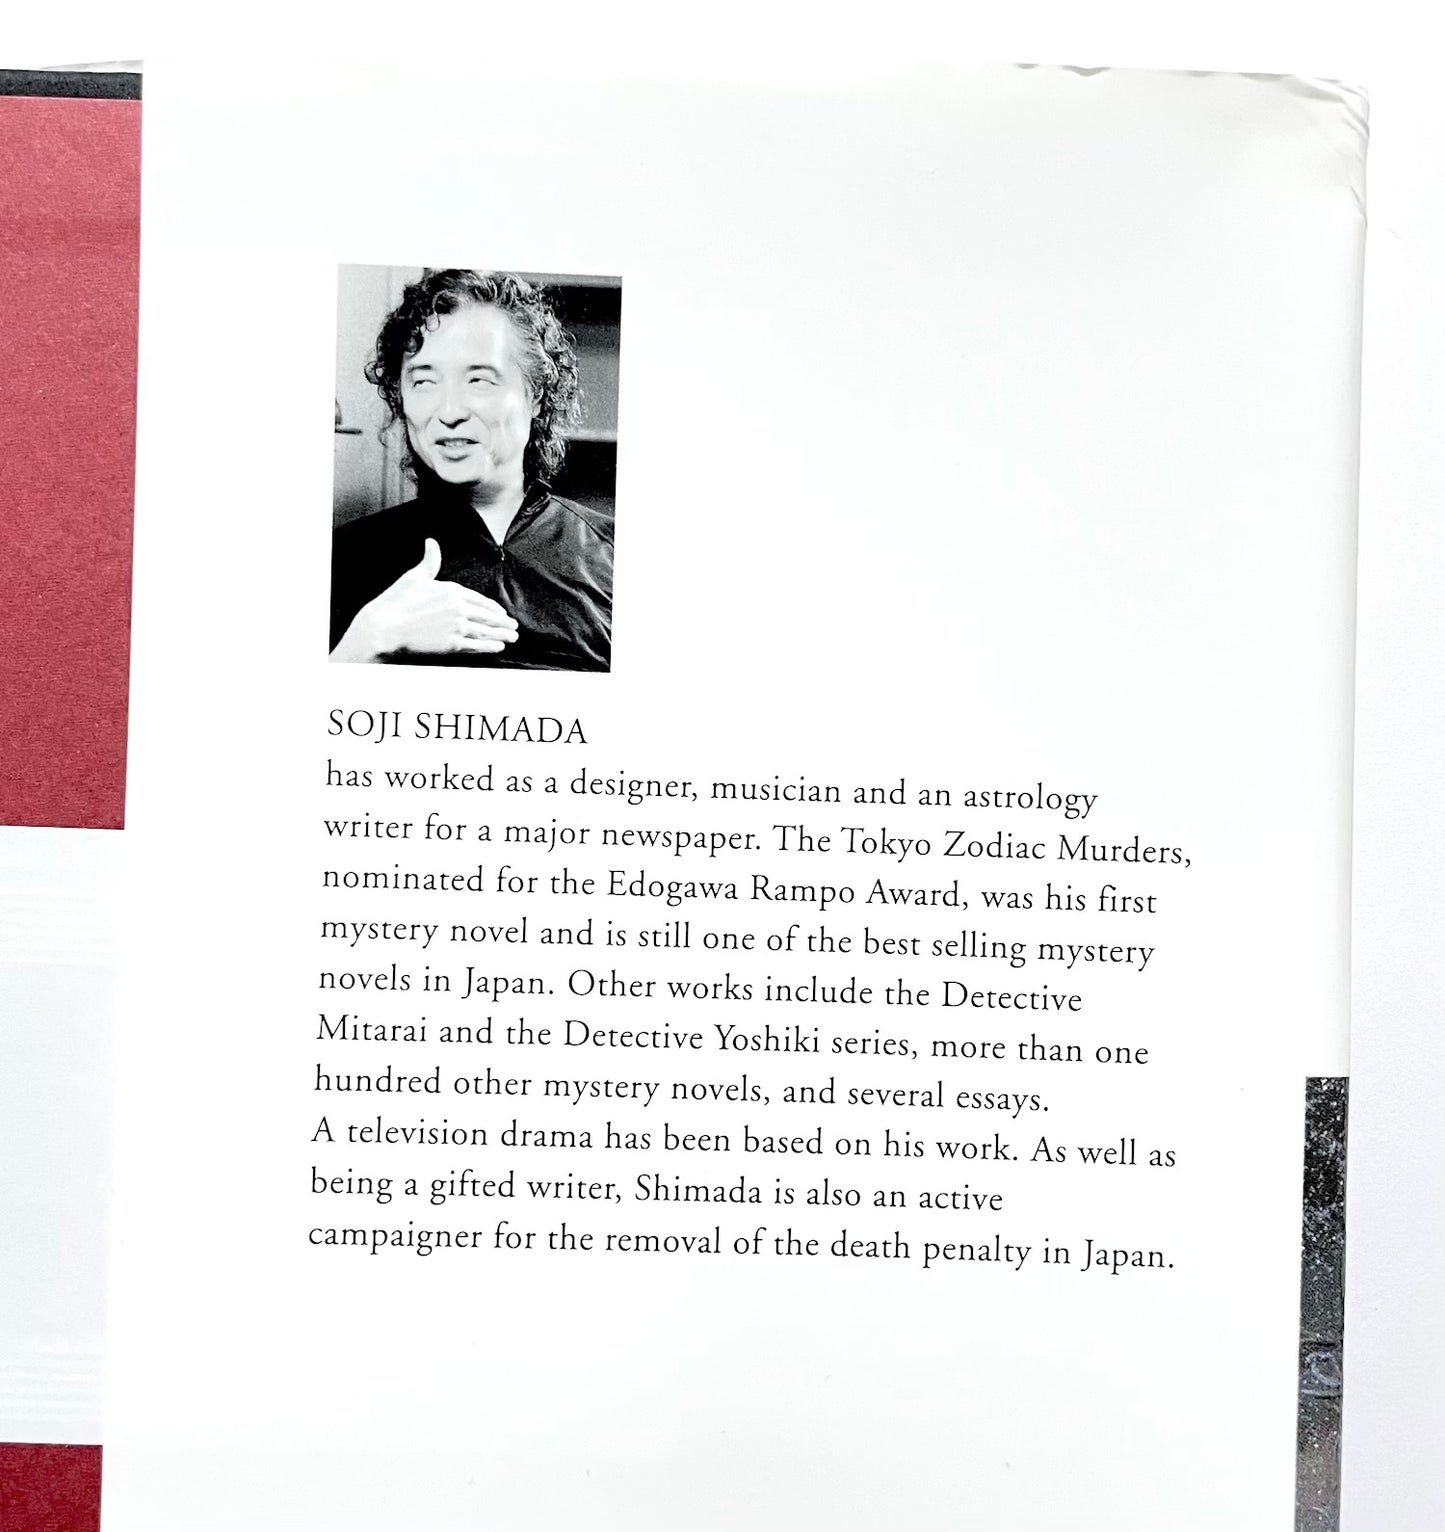 SOJI SHIMADA
has worked as a designer, musician and an astrology
writer for a major newspaper. The Tokyo Zodiac Murders,
nominated for the Edogawa Rampo Award, was his first
mystery novel and is still one of the best selling mystery
novels in Japan. Other works include the Detective
Mitarai and the Detective Yoshiki series, more than one
hundred other mystery novels, and several essays.
A television drama has been based on his work. As well as
being a gifted writer, Shimada is also an active
campaigner for the removal of the death penalty in Japan.